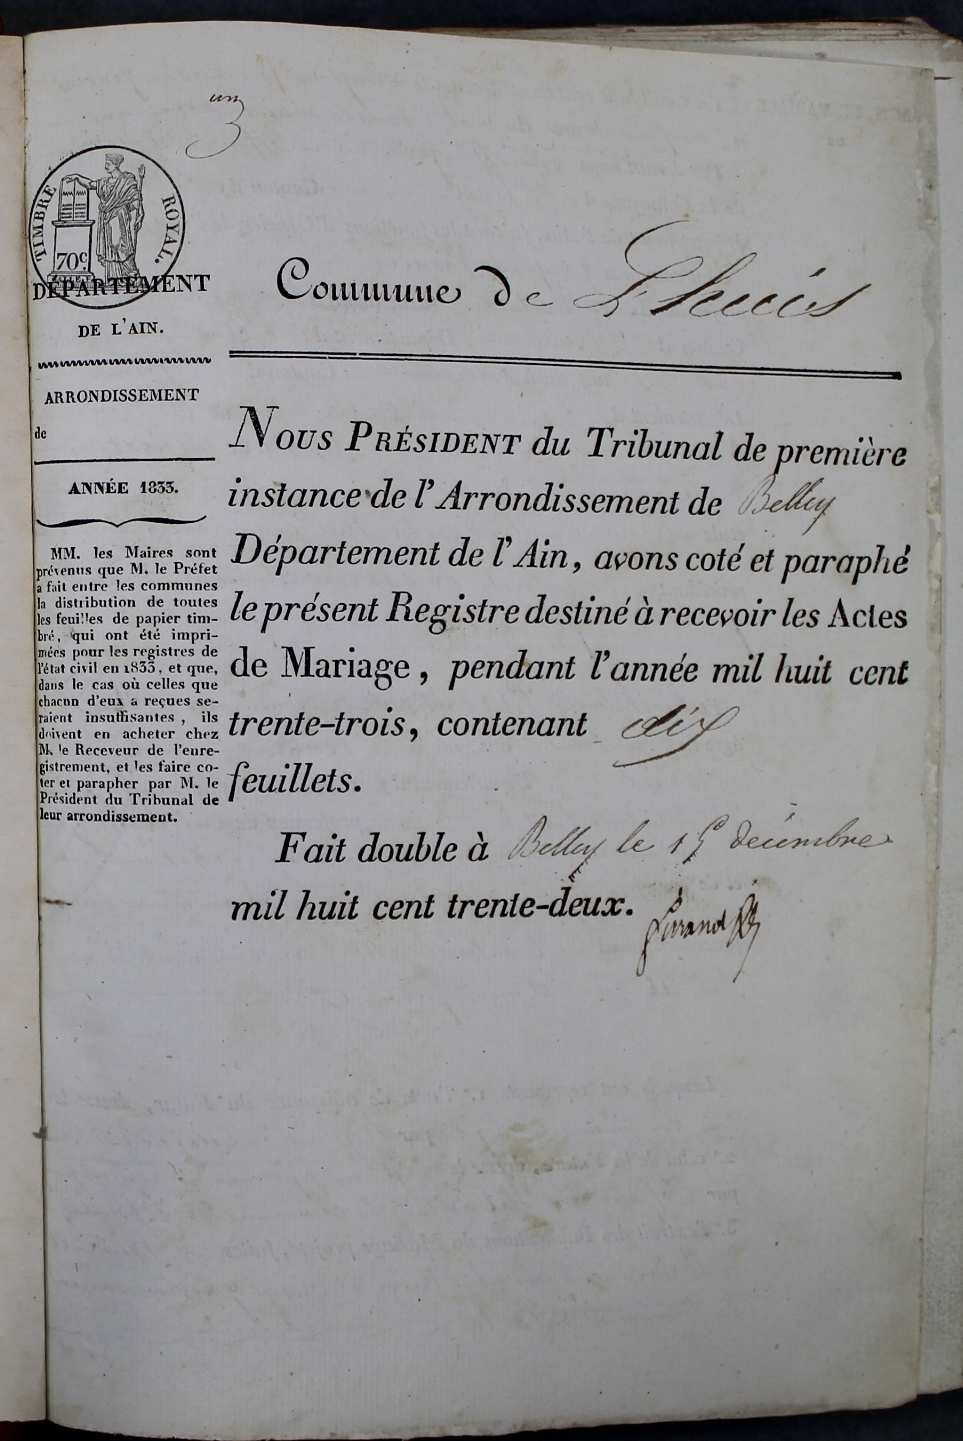 un
TIMBRE ROYAL.
70c
DÉPARTEMENT
DE L'AIN.
ARRONDISSEMENT
de
ANNÉE 1833.
MM. les Maires sont
prévenus que M. le Préfet
a fait entre les communes
la distribution de toutes
les feuilles de papier tim-
bré, qui ont été impri-
mées pour les registres de
l'état civil en 1833, et que,
dans le cas où celles que
chacun d'eux a reçues se-
raient insuffisantes, ils
doivent en acheter chez
M. le Receveur de l'enre-
gistrement, et les faire co-
ter et parapher par M. le
Président du Tribunal de
leur arrondissement.
Commune de Lhuis
NOUS PRÉSIDENT du Tribunal de première
instance de l'Arrondissement de Belley
Département de l'Ain, avons coté et paraphé
le présent Registre destiné à recevoir les Actes
de Mariage, pendant l'année mil huit cent
trente-trois, contenant dix
feuillets.
Fait double à Belley le décembre
mil huit cent trente-deux.